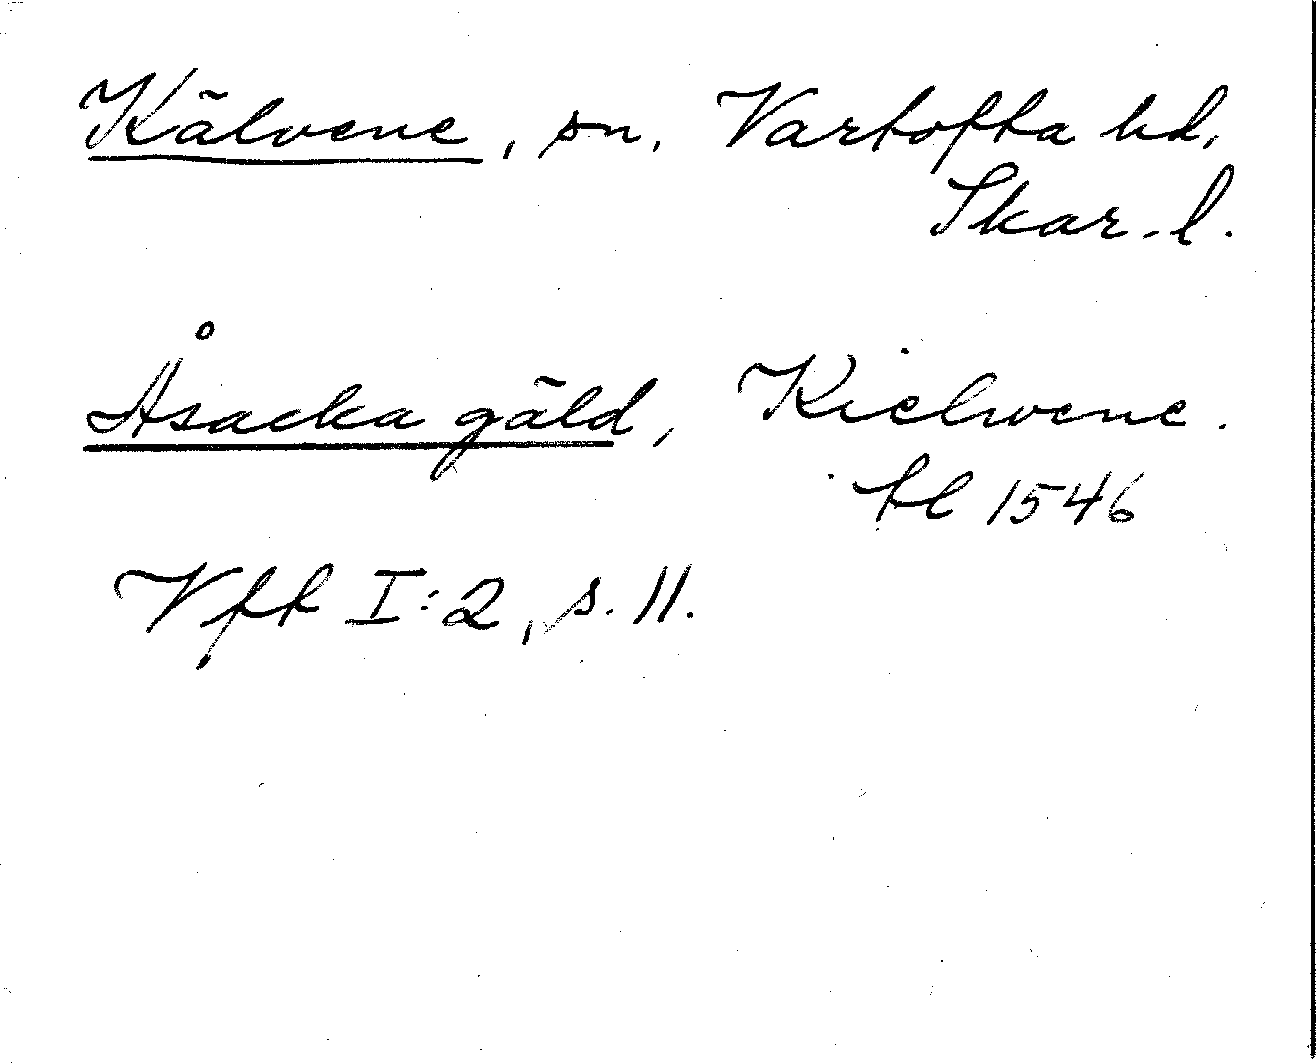 Kälvene, sn, Vartofta hd,
Skar. l.
Åsacka gäld, Kielwene.
tl 1546
Vft I:2, s. 11.